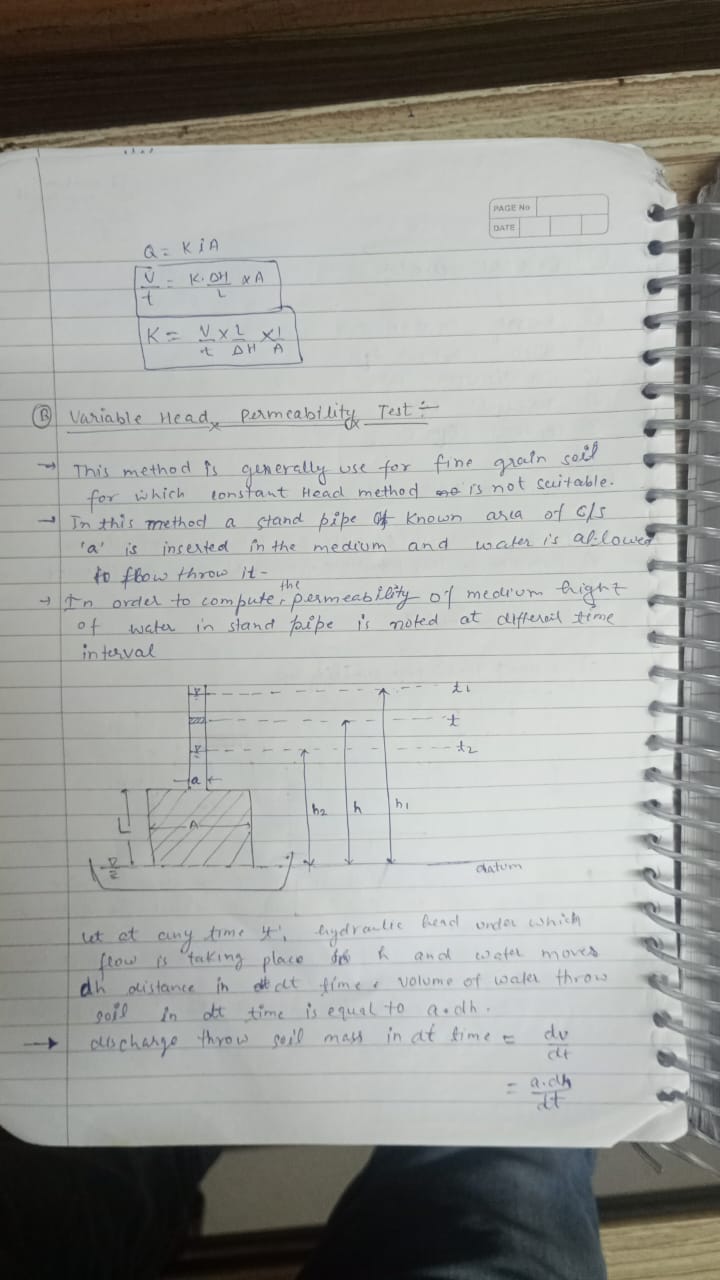 PAGE No
DATE
Q = K i A
V/t = K. ΔH/L x A
K = V/t x L/ΔH x 1/A
(B) Variable Head Permeability Test :-
→ This method is generally use for fine grain soil
for which constant Head method is not suitable.
→ In this method a stand pipe of known area of c/s
'a' is inserted in the medium and water is allowed
to flow throw it -
→ In order to compute the permeability of medium hight
of water in stand pipe is noted at different time
interval
t1
t
t2
a
h2 h h1
L
A
datum
let at any time 't', hydraulic head under which
flow is taking place is h and water moves
dh distance in dt time volume of water throw
soil in dt time is equal to a.dh.
→ discharge throw soil mass in dt time = dv/dt
= a.dh/dt